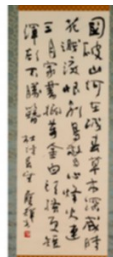 國破山河在城春草木深感時
花濺淚恨別鳥驚心烽火連
三月家書抵萬金白頭搔更短
渾欲不勝簪